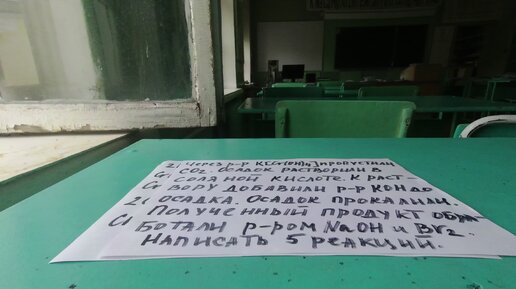 2) ЧЕРЕЗ Р-Р K[Cr(OH)4] ПРОПУСТИЛИ
CO2. ОСАДОК РАСТВОРИЛИ В
СОЛЯНОЙ КИСЛОТЕ. К РАСТ-
ВОРУ ДОБАВИЛИ Р-Р KOH ДО
ОСАДКА. ОСАДОК ПРОКАЛИЛИ.
ПОЛУЧЕННЫЙ ПРОДУКТ ОБРА-
БОТАЛИ Р-РОМ NaOH И Br2.
НАПИСАТЬ 5 РЕАКЦИЙ.